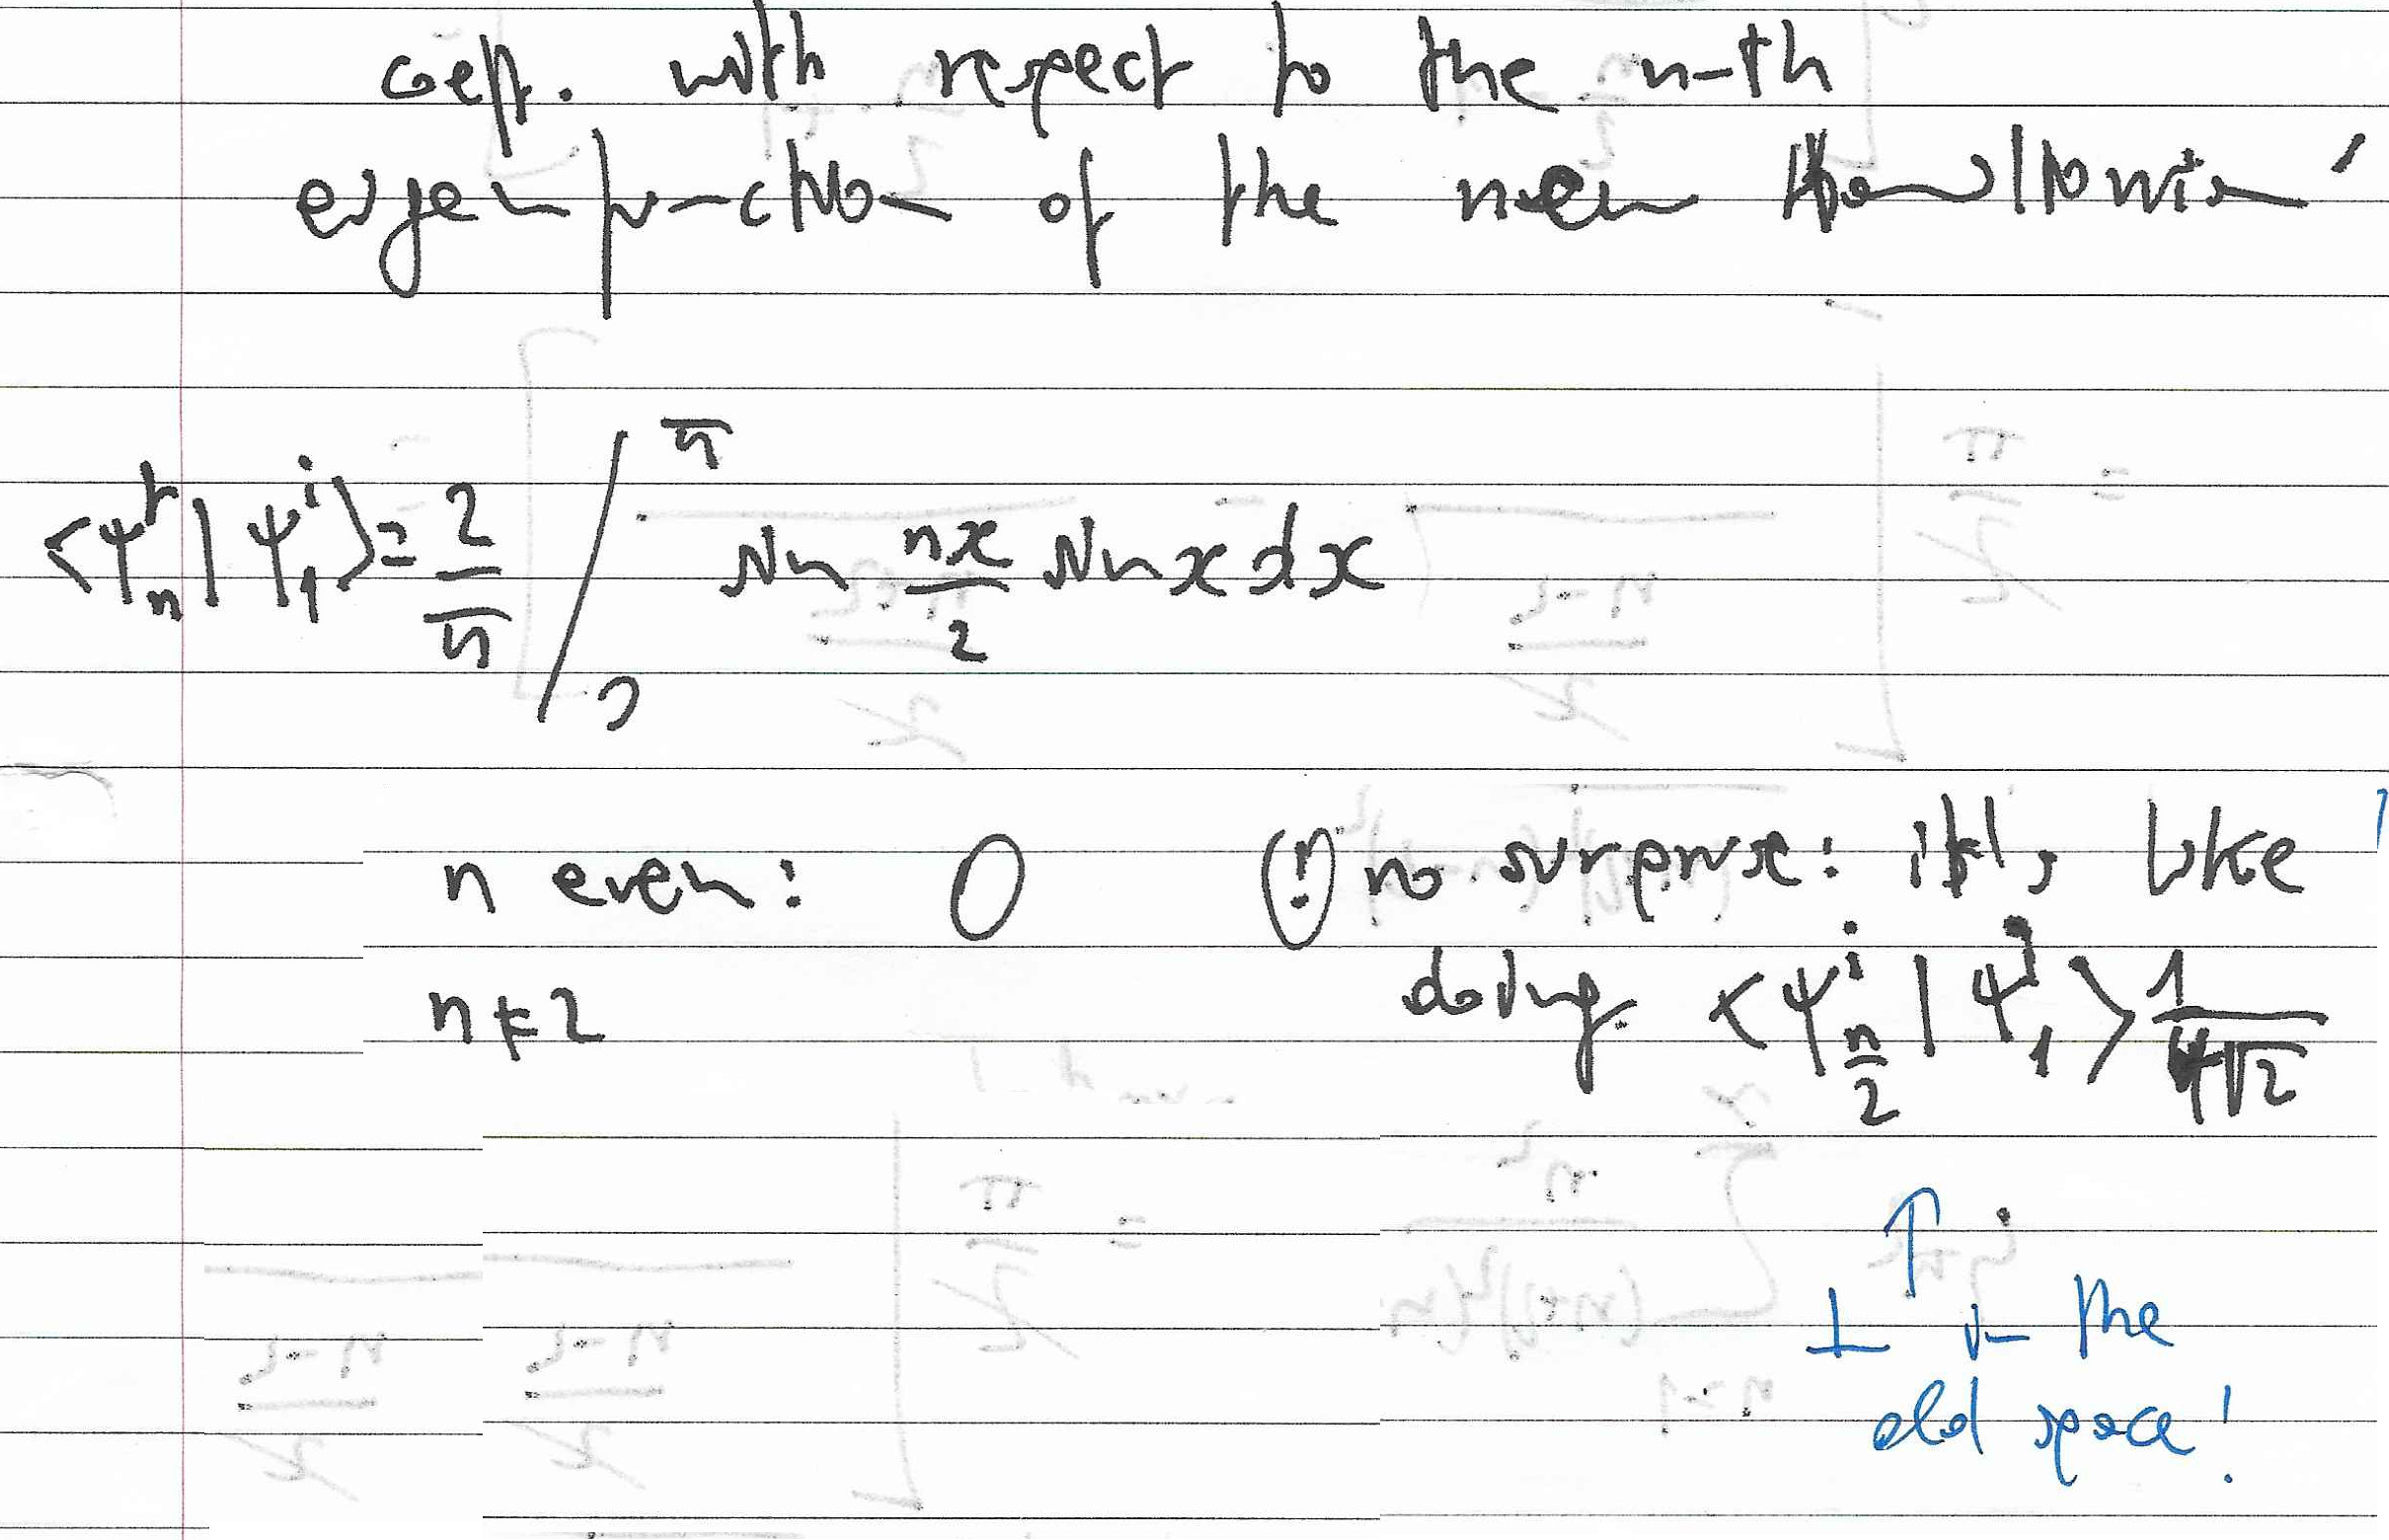 coeff. with respect to the n-th
eigenfunction of the new Hamiltonian
⟨ψₙᶠ | ψ₁ⁱ⟩ = 2/π ∫₀^π sin nx/2 sin x dx
n even: 0 (!) no surprise: it's like
n ≠ 2 doing ⟨ψⁱ_{n/2} | ψ₁ⁱ⟩ 1/√2
↑
⊥ in the
old space!